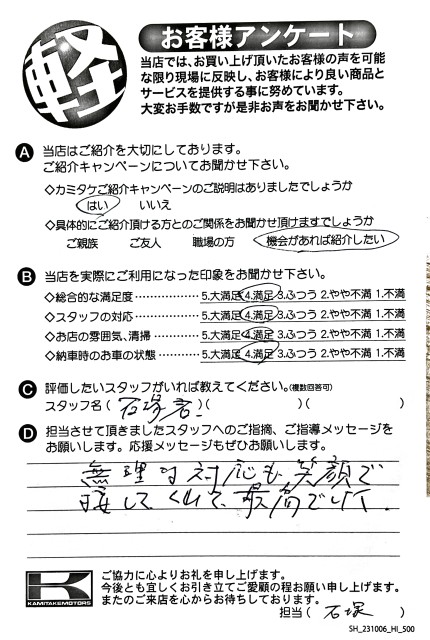 軽
お客様アンケート
当店では、お買い上げ頂いたお客様の声を可能
な限り現場に反映し、お客様により良い商品と
サービスを提供する事に努めています。
大変お手数ですが是非お声をお聞かせ下さい。
A 当店はご紹介を大切にしております。
ご紹介キャンペーンについてお聞かせ下さい。
◇カミタケご紹介キャンペーンのご説明はありましたでしょうか
はい いいえ
◇具体的にご紹介頂ける方とのご関係をお聞かせ頂けますでしょうか
ご親族 ご友人 職場の方 機会があれば紹介したい
B 当店を実際にご利用になった印象をお聞かせ下さい。
◇総合的な満足度 5.大満足 4.満足 3.ふつう 2.やや不満 1.不満
◇スタッフの対応 5.大満足 4.満足 3.ふつう 2.やや不満 1.不満
◇お店の雰囲気、清掃 5.大満足 4.満足 3.ふつう 2.やや不満 1.不満
◇納車時のお車の状態 5.大満足 4.満足 3.ふつう 2.やや不満 1.不満
C 評価したいスタッフがいれば教えてください。(複数回答可)
スタッフ名 ( 石塚 )( )( )
D 担当させて頂きましたスタッフへのご指摘、ご指導メッセージを
お願いします。応援メッセージもぜひお願いします。
無理な対応も笑顔で
接してくれて最高でした。
K
KAMITAKEMOTORS
ご協力に心よりお礼を申し上げます。
今後とも宜しくお引き立てご愛顧の程お願い申し上げます。
またのご来店を心からお待ちしております。
担当 ( 石塚 )
SH_231006_HI_500